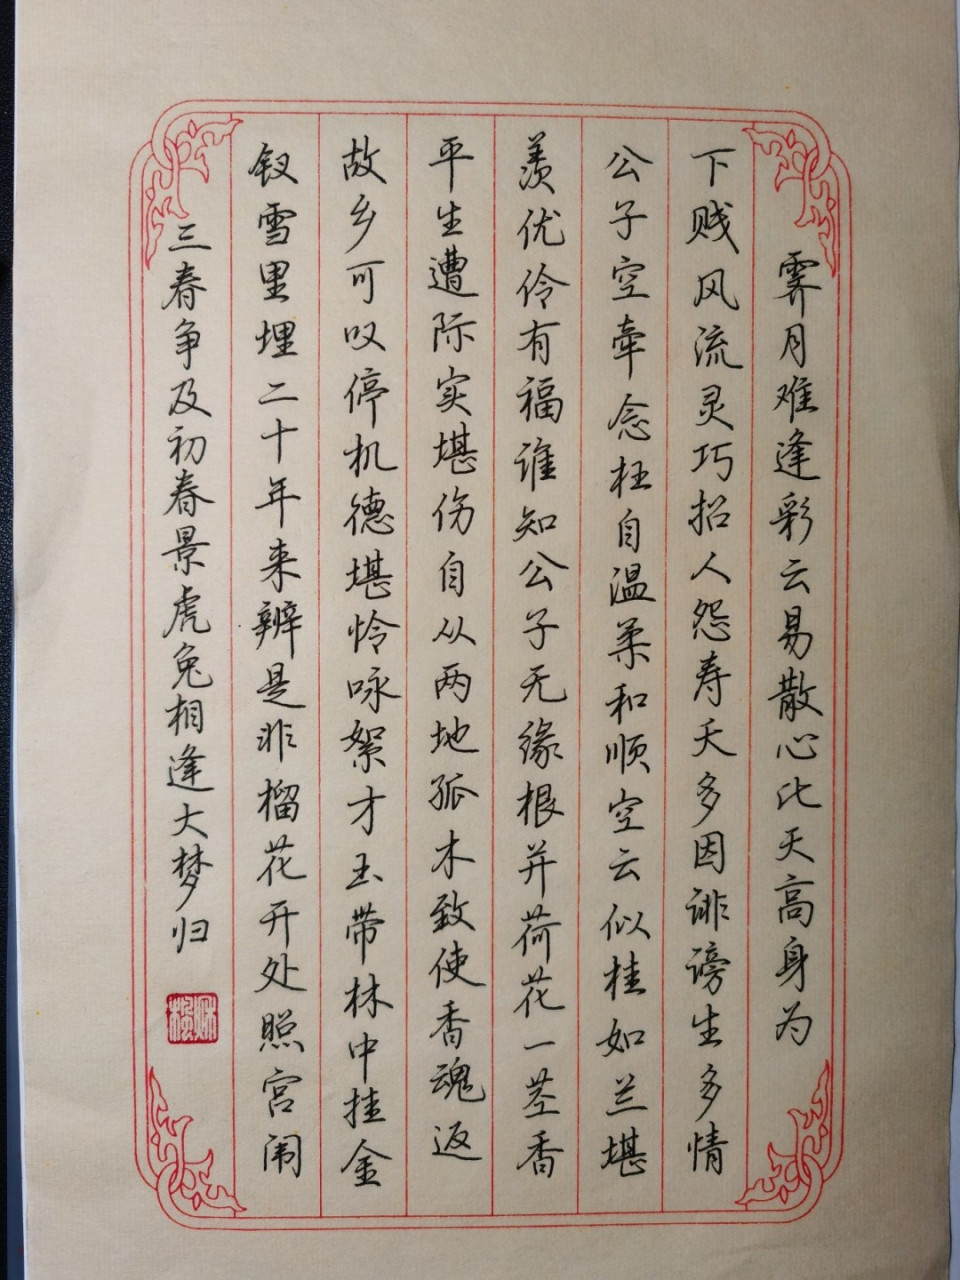 霁月难逢彩云易散心比天高身为
下贱风流灵巧招人怨寿夭多因诽谤生多情
公子空牵念枉自温柔和顺空云似桂如兰堪
羡优伶有福谁知公子无缘根并荷花一茎香
平生遭际实堪伤自从两地孤木致使香魂返
故乡可叹停机德堪怜咏絮才玉带林中挂金
钗雪里埋二十年来辨是非榴花开处照宫闱
三春争及初春景虎兔相逢大梦归